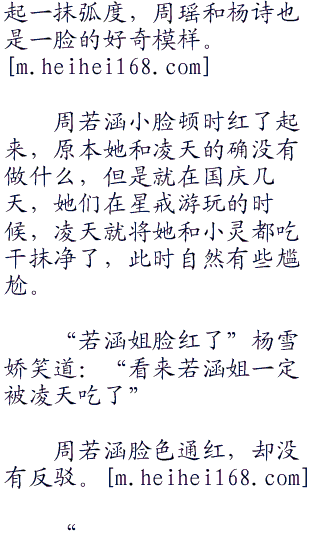 起一抹弧度，周瑶和杨诗也
是一脸的好奇模样。
[m.heihei168.com]
周若涵小脸顿时红了起
来，原本她和凌天的确没有
做什么，但是就在国庆几
天，她们在星戒游玩的时
候，凌天就将她和小灵都吃
干抹净了，此时自然有些尴
尬。
“若涵姐脸红了”杨雪
娇笑道：“看来若涵姐一定
被凌天吃了”
周若涵脸色通红，却没
有反驳。[m.heihei168.com]
“